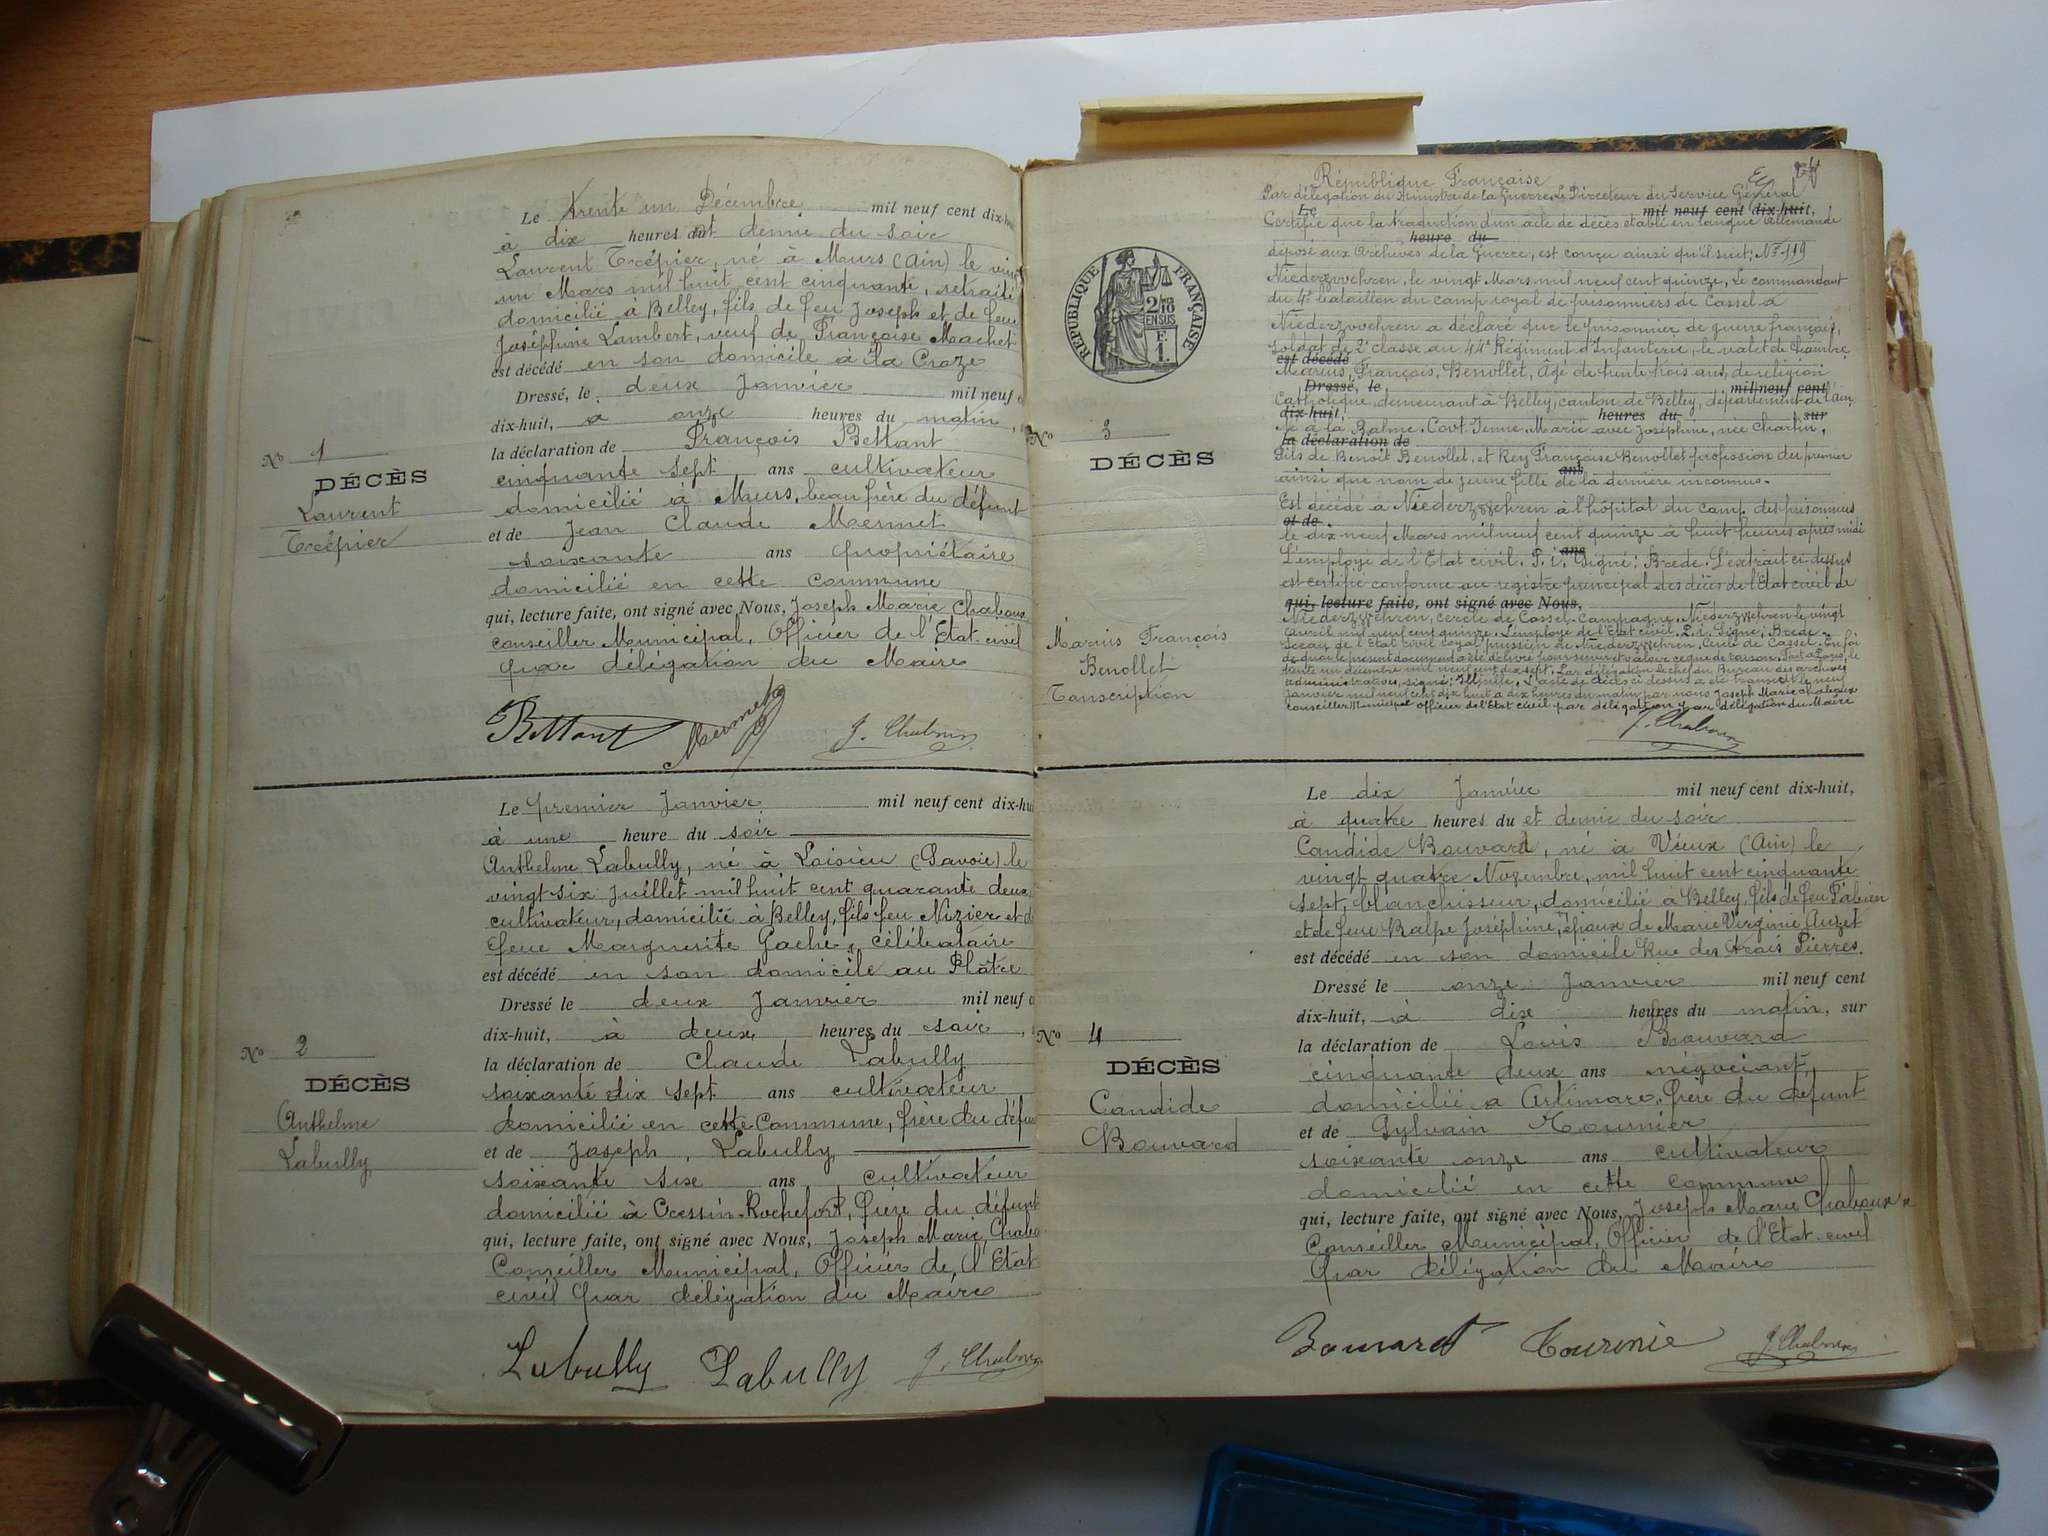 Le trente un Décembre mil neuf cent dix-hui
à dix heures du et demie du soir
Laurent Trépier, né à Murs (Ain) le vingt
un Mars mil huit cent cinquante, retraité
domicilié à Belley, fils de feu Joseph et de feue
Joséphine Lambert, veuf de Françoise Machet
est décédé en son domicile à la Craze
Dressé, le deux Janvier mil neuf c
dix-huit, à onze heures du matin,
la déclaration de François Bettant
cinquante sept ans cultivateur
domicilié à Murs, beau frère du défunt
et de Jean Claude Mermet
soixante ans propriétaire
domicilié en cette commune
qui, lecture faite, ont signé avec Nous, Joseph Marie Chaboux
conseiller Municipal, Officier de l'Etat-civil
par délégation du Maire
Nº 1
DÉCÈS
Laurent
Trépier
Bettant Mermet J. Chaboux
Le premier Janvier mil neuf cent dix-hui
à une heure du soir
Anthelme Labully, né à Loisieu (Savoie) le
vingt-six Juillet mil huit cent quarante deux
cultivateur, domicilié à Belley, fils feu Nizier et de
feue Marguerite Gache, célibataire
est décédé en son domicile au Plâtre
Dressé le deux Janvier mil neuf c
dix-huit, à deux heures du soir,
la déclaration de Claude Labully
soixante dix sept ans cultivateur
domicilié en cette Commune, frère du défun
et de Joseph Labully
soixante six ans cultivateur
domicilié à Cressin-Rochefort, frère du défunt
qui, lecture faite, ont signé avec Nous, Joseph Marie Chabo
Conseiller Municipal, Officier de l'Etat
civil par délégation du Maire
Nº 2
DÉCÈS
Anthelme
Labully
Labully Labully J. Chaboux
République Française
Par délégation du Ministre de la Guerre, Le Directeur du Service Général
Le mil neuf cent dix-huit,
Certifie que la traduction d'un acte de décès établi en langue Allemande
heure du
déposé aux Archives de la Guerre, est conçu ainsi qu'il suit: Nº 119
Niederzwehren, le vingt Mars mil neuf cent quinze, Le commandant
du 4e bataillon du camp royal de prisonniers de Cassel à
Niederzwehren a déclaré que le prisonnier de guerre français,
soldat de 2e classe au 44e Régiment d'Infanterie, le valet de chambre
est décédé
Marius, François, Benollet, âgé de trente trois ans, de religion
Dressé, le mil neuf cent
Catholique, demeurant à Belley, canton de Belley, département de l'Ain
dix-huit, heures du sur
né à la Balme. Cont. Yenne. Marié avec Joséphine, née Charlin,
la déclaration de
Fils de Benoit Benollet, et Rey Françoise Benollet profession du premier
ans
ainsi que nom de jeune fille de la dernière inconnus.
Est décédé à Niederzwehren à l'hôpital du camp des prisonniers
et de
le dix neuf Mars mil neuf cent quinze à huit heures après midi
ans
L'employé de l'Etat civil. P.i. Signé: Brede. L'extrait ci-dessus
est certifié conforme au registre principal des décès de l'Etat civil de
qui, lecture faite, ont signé avec Nous,
Niederzwehren, cercle de Cassel. Campagne. Niederzwehren le vingt
avril mil neuf cent quinze. L'employé de l'Etat civil. P.i. Signé, Brede.
Sceau de l'Etat civil royal prussien de Niederzwehren. Cercle de Cassel. En foi
de quoi le présent document a été délivré pour servir et valoir ce que de raison. Fait à Paris, le
trente un décembre mil neuf cent dix sept. Par délégation le chef du Bureau des archives
administratives, signé: Illisible. L'acte de décès ci dessus a été transcrit le neuf
Janvier mil neuf cent dix huit à dix heures du matin par nous Joseph Marie Chaboux
conseiller Municipal officier de l'Etat civil par délégation par délégation du Maire
J. Chaboux
RÉPUBLIQUE FRANÇAISE
2/10
EN SUS
F.
1.
Nº 3
DÉCÈS
Marius François
Benollet
Transcription
Le dix Janvier mil neuf cent dix-huit,
à quatre heures du et demie du soir
Candide Bouvard, né à Vieux (Ain) le
vingt quatre Novembre, mil huit cent cinquante
sept, blanchisseur, domicilié à Belley, fils de feu Fabien
et de feue Balpe Joséphine, époux de Marie Virginie Auzet
est décédé en son domicile Rue des trois Pierres.
Dressé le onze Janvier mil neuf cent
dix-huit, à dix heures du matin, sur
la déclaration de Louis Bouvard
cinquante deux ans négociant,
domicilié à Artemare, frère du défunt
et de Sylvain Tournier
soixante onze ans cultivateur
domicilié en cette commune
qui, lecture faite, ont signé avec Nous, Joseph Marie Chaboux
Conseiller Municipal, Officier de l'Etat-civil
par délégation du Maire
Nº 4
DÉCÈS
Candide
Bouvard
Bouvard Tournie J. Chaboux